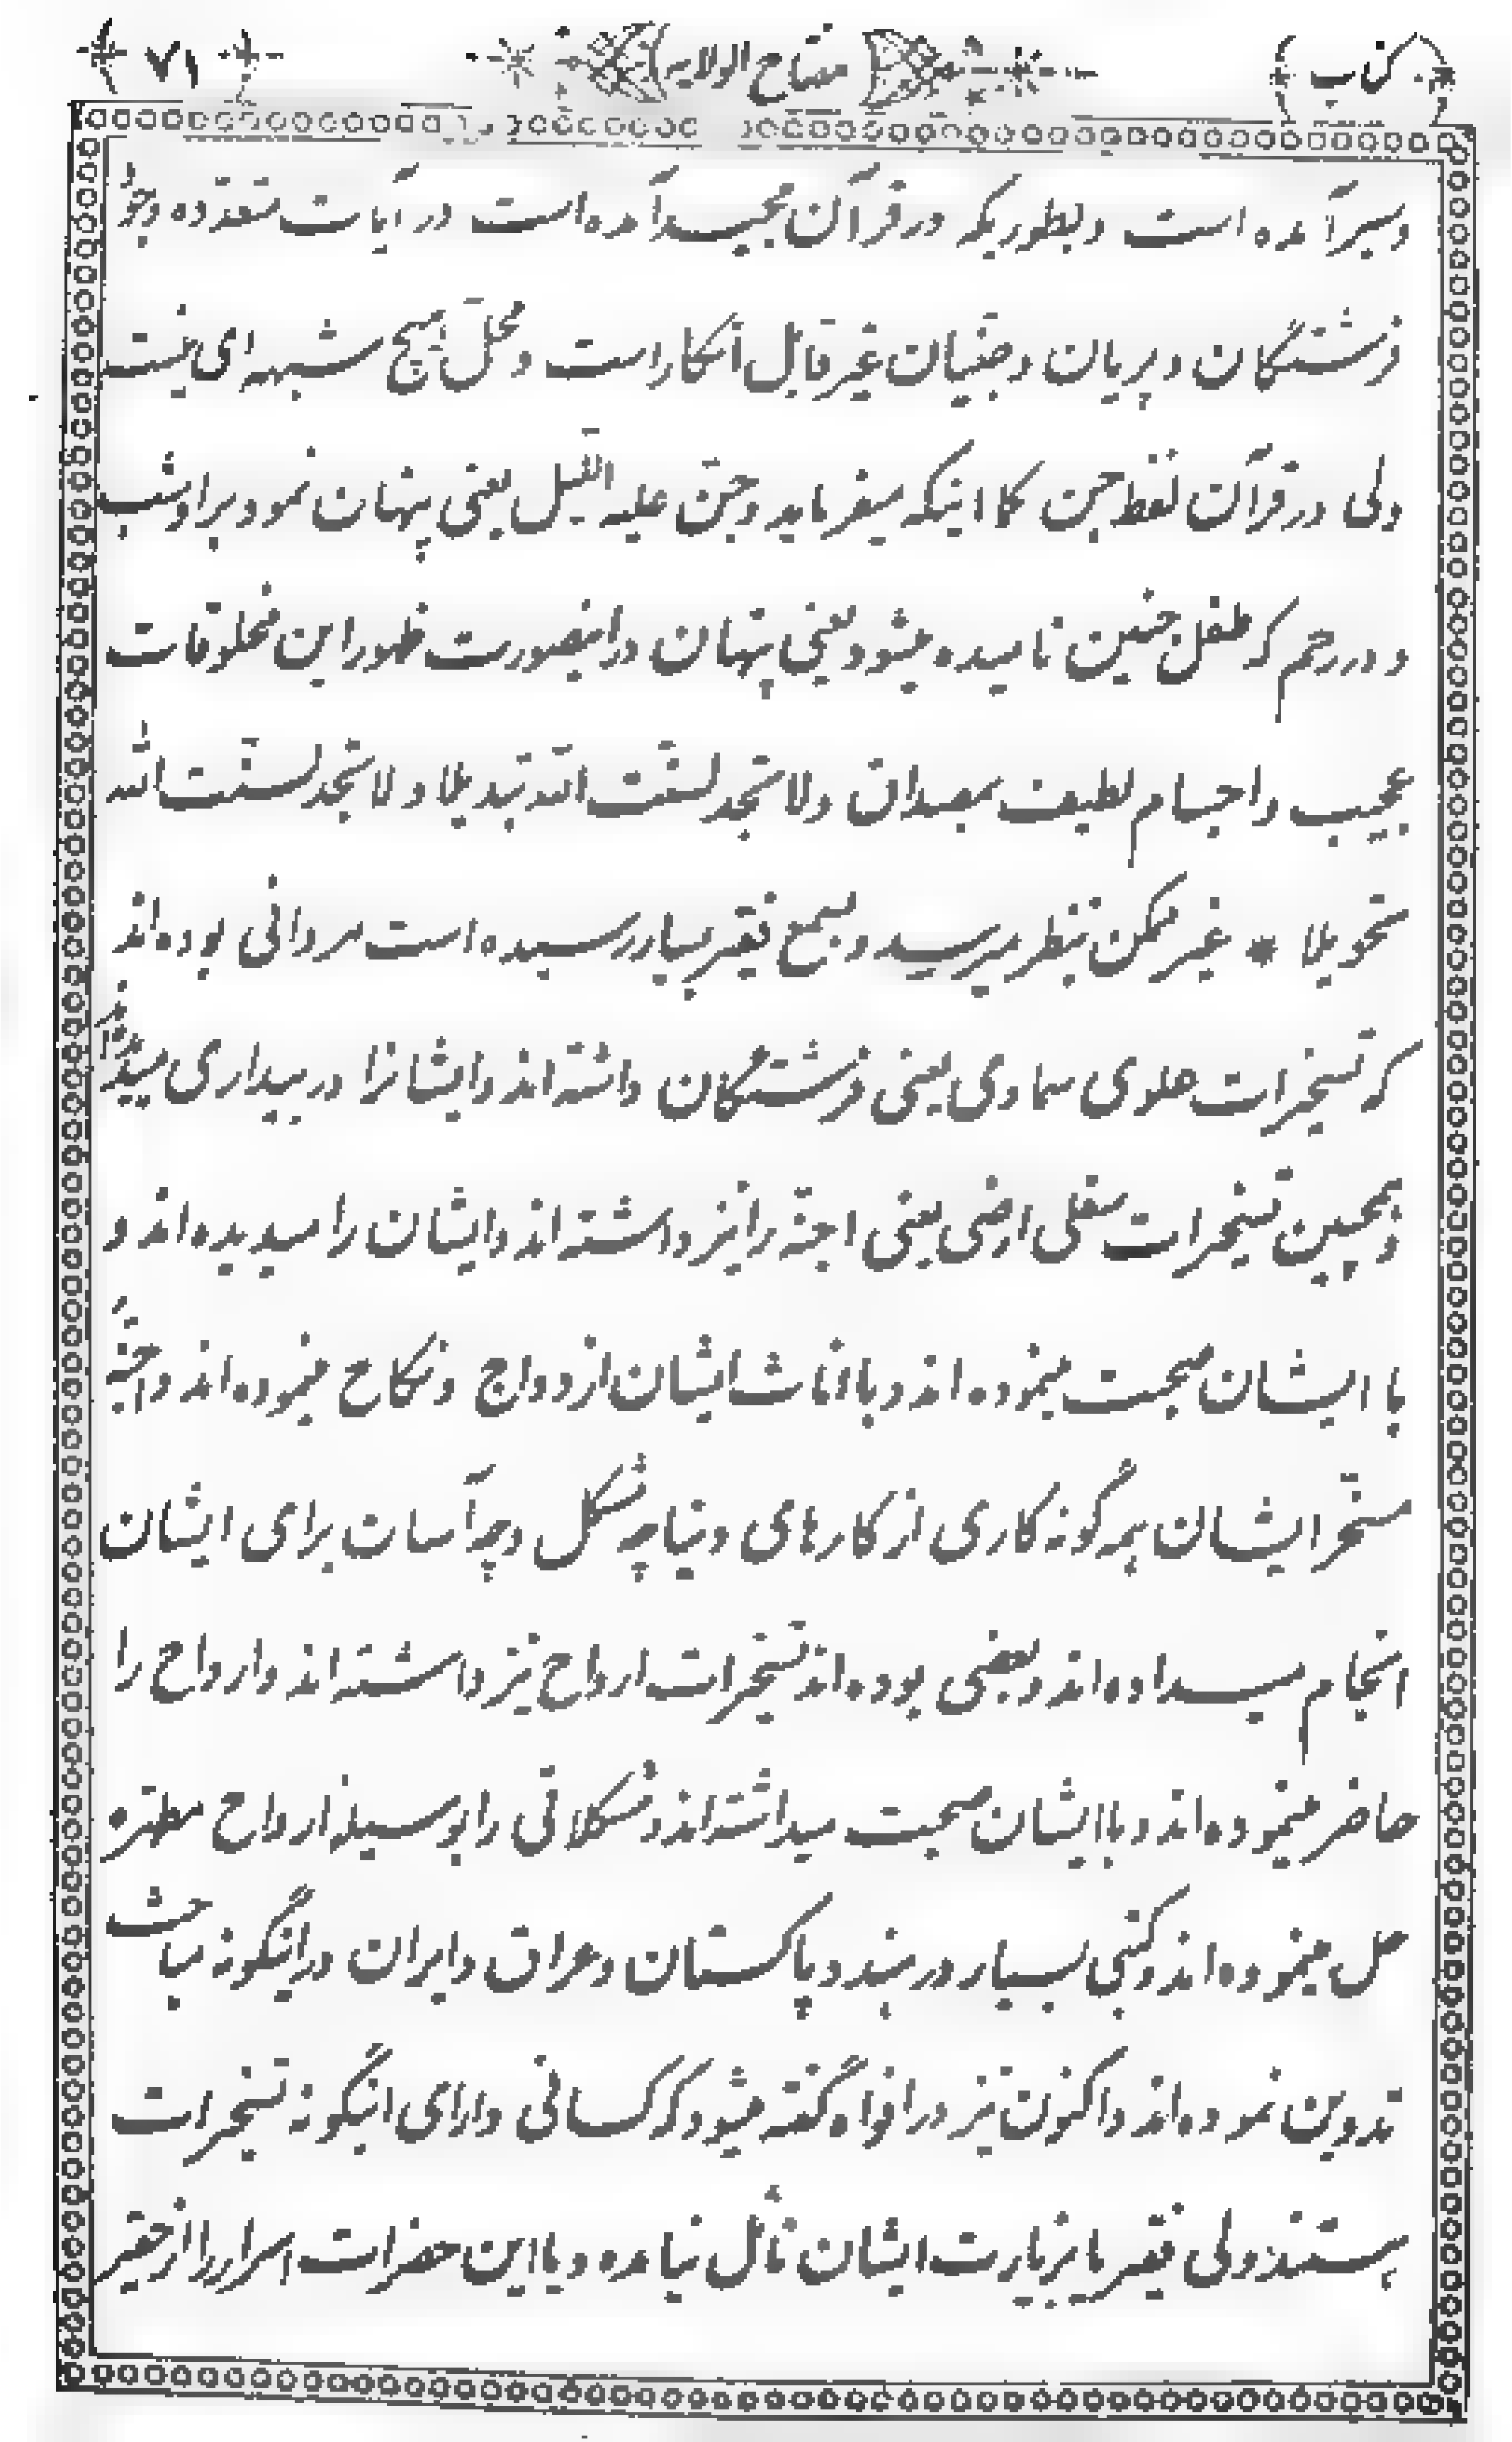 کتاب مفتاح الولایه ۷۱
وسیر آمده است و بطوریکه در قرآن مجید آمده است در آیات متعدده وجود
فرشتگان و پریان و جنیان غیر قابل انکار است و محل هیچ شبهه ای نیست
ولی در قرآن لفظ جن کما اینکه میفرماید و جن علیه اللیل یعنی پنهان نمود بر او شب
و در رحم که طفل جنین نامیده میشود یعنی پنهان در اینصورت ظهور این مخلوقات
عجیب و اجسام لطیف بمصداق ولا تجد لسنت الله تبدیلا و لا تجد لسنت الله
تحویلا * غیر ممکن بنظر میرسد و بسمع فقیر بسیار رسیده است مردانی بوده اند
که تسخیرات علوی سماوی یعنی فرشتگان داشته اند و ایشانرا در بیداری میدیده اند
و همچنین تسخیرات سفلی ارضی یعنی اجنه را نیز داشته اند و ایشان را میدیده اند و
با ایشان صحبت مینموده اند و با اناث ایشان ازدواج و نکاح مینموده اند و اجنه
مسخر ایشان همه گونه کاری از کارهای دنیا چه مشکل و چه آسان برای ایشان
انجام میداده اند و بعضی بوده اند تسخیرات ارواح نیز داشته اند و ارواح را
حاضر مینموده اند و با ایشان صحبت میداشته اند و مشکلاتی را بوسیله ارواح مطهره
حل مینموده اند و کتبی بسیار در هند و پاکستان و عراق و ایران در اینگونه مباحث
تدوین نموده اند و اکنون نیز در افواه گفته میشود که کسانی دارای اینگونه تسخیرات
هستند ولی فقیر ما بزیارت ایشان نائل نیامده و یا این حضرات اسرار را از حقیر